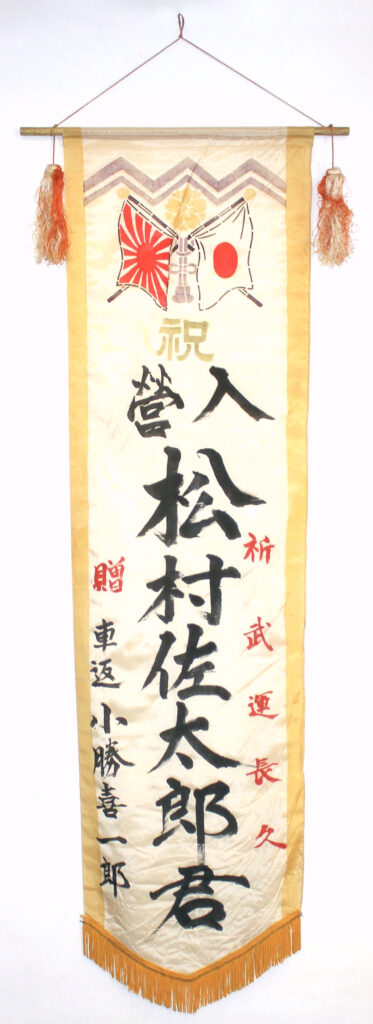 祝
入營
松村佐太郎君
祈武運長久
贈
車返 小勝喜一郎